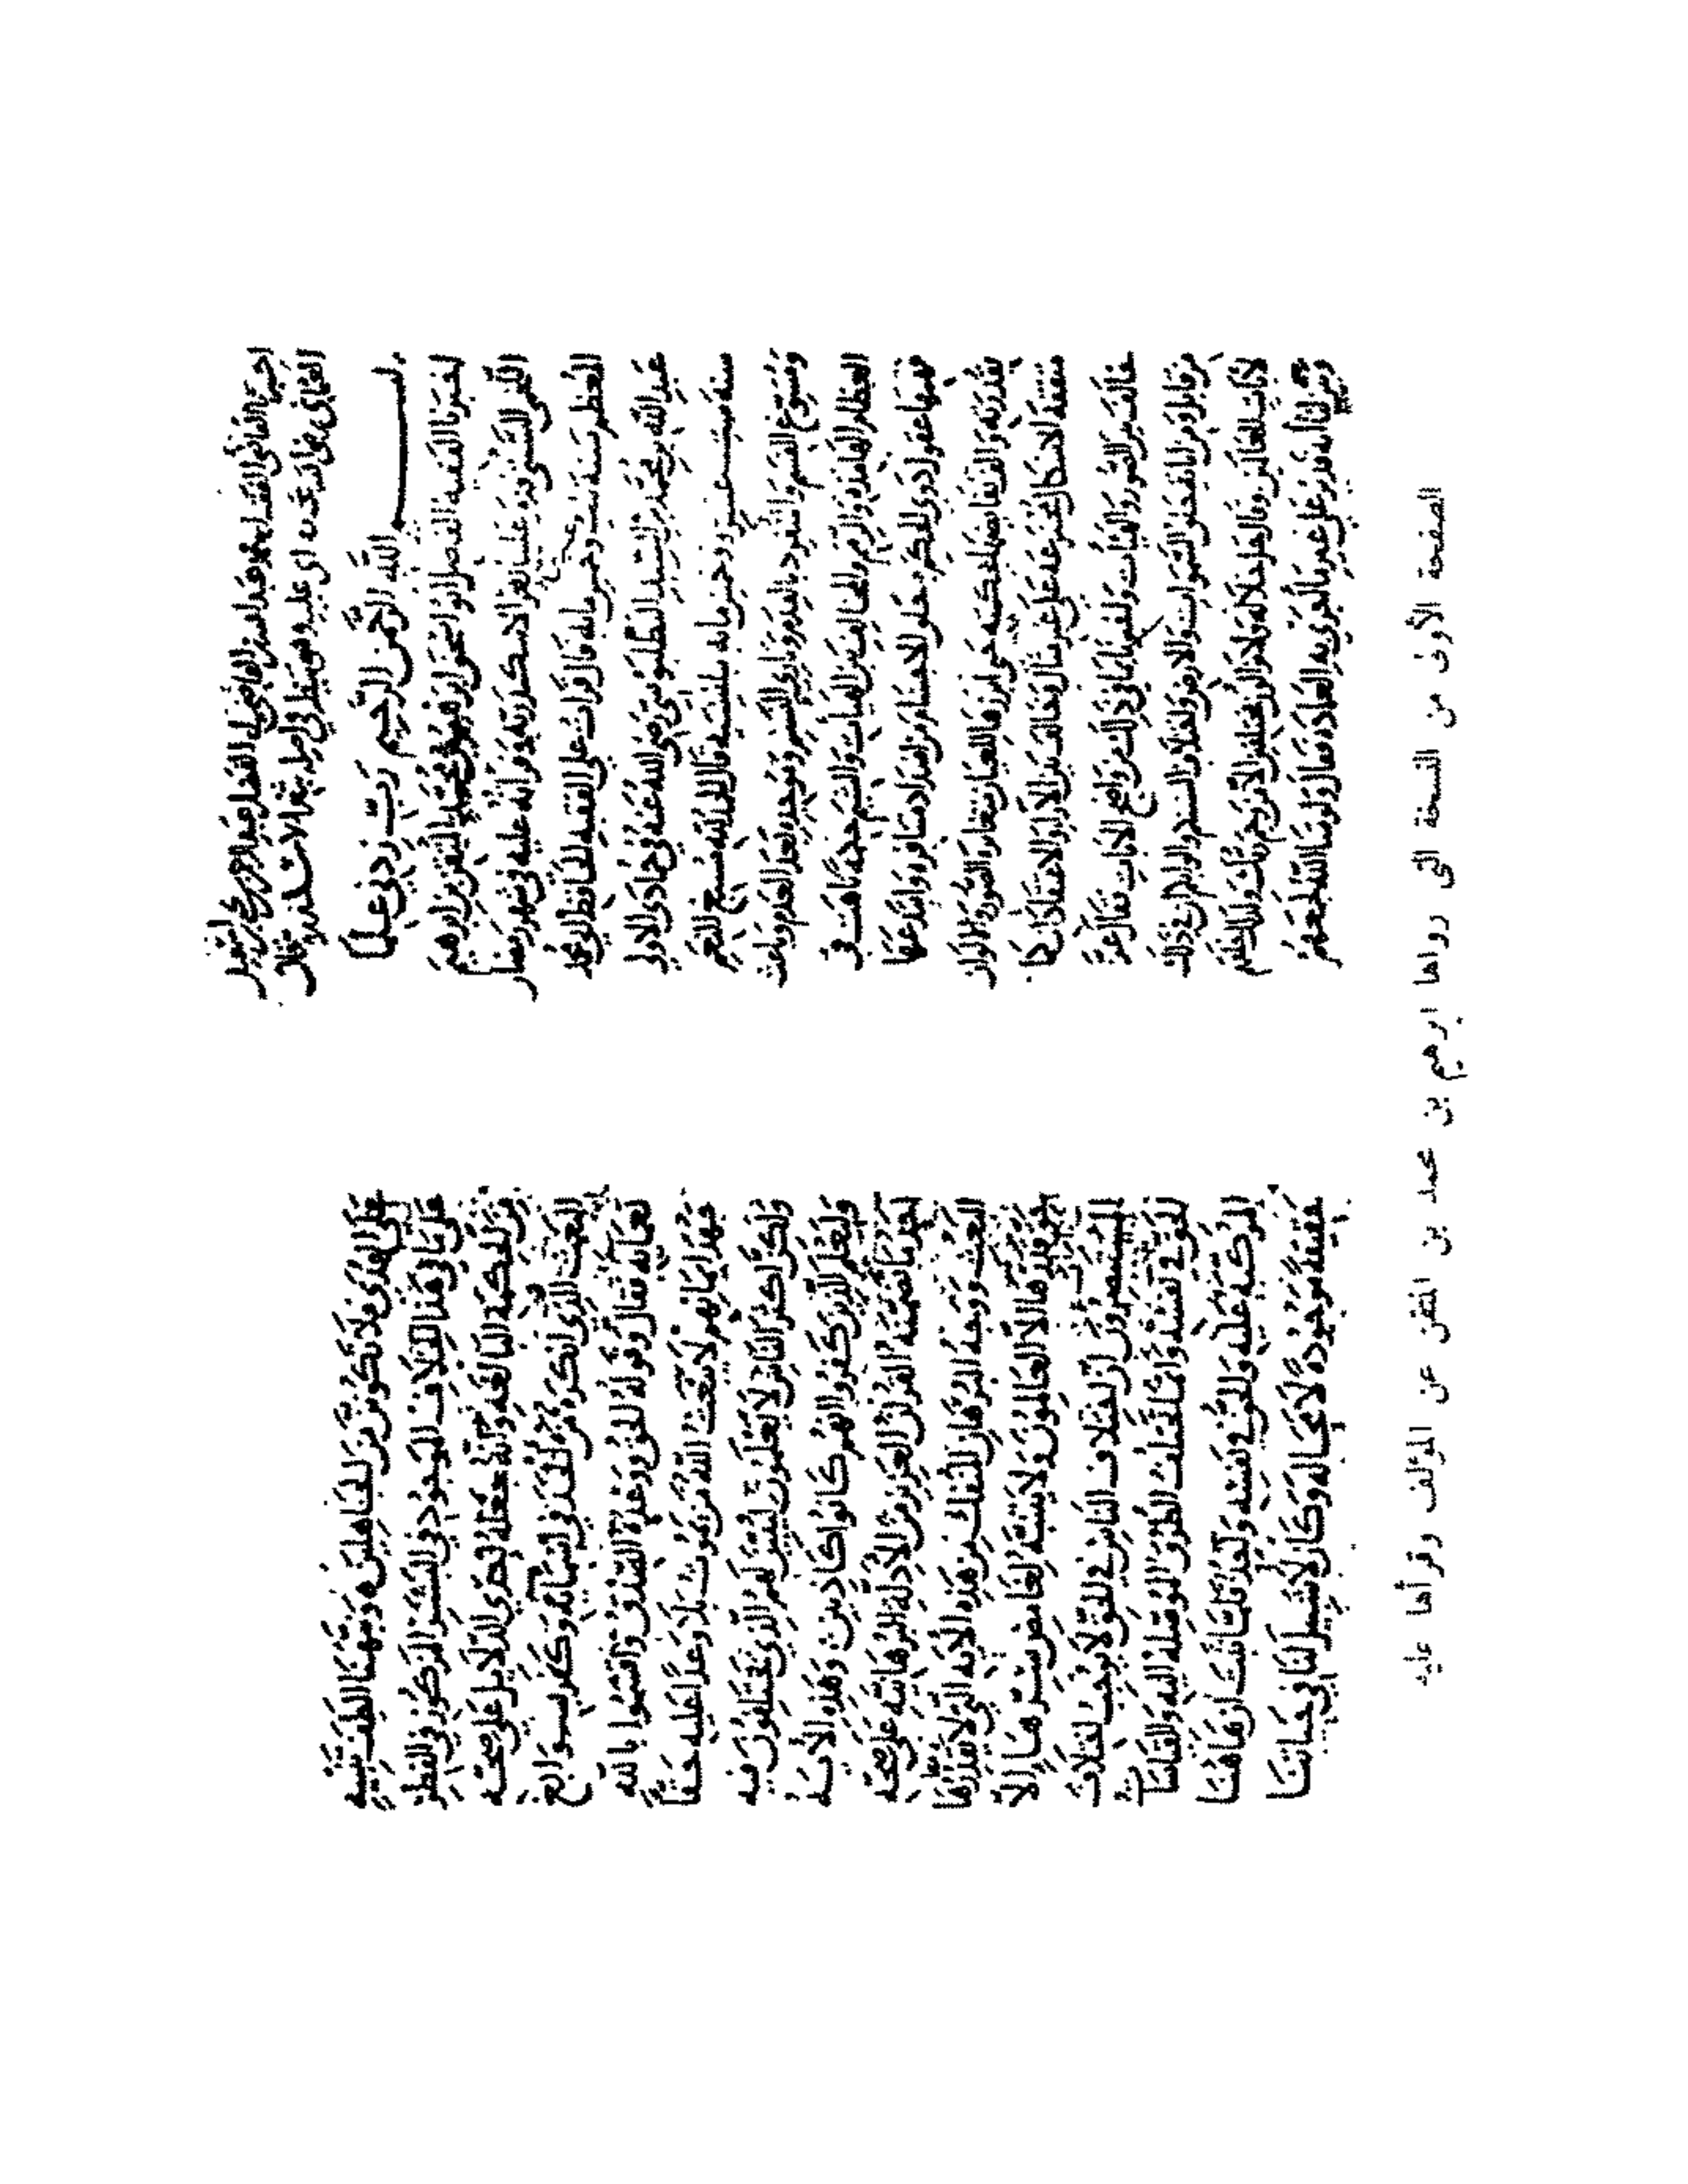 بسم الله الرحمن الرحيم رب زدني علما
اخبرنا الفقيه الفاضل ابو اسحق ابرهيم بن محمد بن المتقن بن ابرهيم
اللخمي السبتي قدم علينا بثغر الاسكندرية عليه في شهر رمضان
المعظم سنة ست مايه قال قرات على الفقيه الحافظ ابي محمد
عبد الله بن محمد بن السيد البطليوسي رضي الله عنه في جمادى الاولى
سنة ست عشرة وخمس مايه ببلنسية قال الحمد لله مسبغ النعم
ومسوغ القسم والمتفرد بالقدم وباري النسم وموجدها بعد العدم وباعث
العظام الهامدة والرمم والمخالف بين الهيات والشيم حكمة تاهت في
فهمها عقول ذوي الاجسام من اضداد متنافرة وابتدعها
بقدرته بحكمته حتى ابرزها للعيان متغايرة الصور والالوان
متقنة الاشكال مخترعة على غير مثال وخالف بين الاراء والاعتقادات كما
خالف بين الصور والهيات بما في ذلك من واضح الايات فقال عز
من قايل ومن اياته خلق السموات والارض واختلاف السنتكم والوانكم ان في ذلك
لايات للعالمين وقال جل جلاله ولا يزالون مختلفين الا من رحم ربك ولذلك خلقهم
وبين لنا انه قدير على غير ما اجرى به العادة فقال ولو شا الله لجمعهم
على الهدى فلا تكونن من الجاهلين ونبهنا الطف تنبيه
على ما في هذا الخلاف الموجود في البشر المركوز في الفطر
من الحكمة البالغة وانه جعله احدى الدلايل على صحة
البعث الذي انكره من الحد في اسمايه وكفر بسوابغ
نعمايه فقال وقوله الحق ووعده الصدق واقسموا بالله
جهد ايمانهم لا يبعث الله من يموت بلى وعدا عليه حقا
ولكن اكثر الناس لا يعلمون ليبين لهم الذي يختلفون فيه
وليعلم الذين كفروا انهم كانوا كاذبين وهذه الاية
احد ما تضمنه القران العزيز من الادلة البرهانية على صحة
البعث ووجه البرهان المنفك من هذه الاية التي لا يقدرها
حق قدرها الا العالمون ولا ينتبه لغامض سرها الا
المستبصرون ان اختلاف الناس في الحق لا يوجب اختلاف
الحق في نفسه وانما تختلف الطرق الموصلة اليه والقياسات
المركبة عليه والحق في نفسه واحد فلما ثبت ان هاهنا
حقيقة موجودة لا محالة وكان لا سبيل لنا في حياتنا
الصفحة الأولى من النسخة التى رواها ابرهيم بن محمد بن المتقن عن المؤلف وقرأها عليه